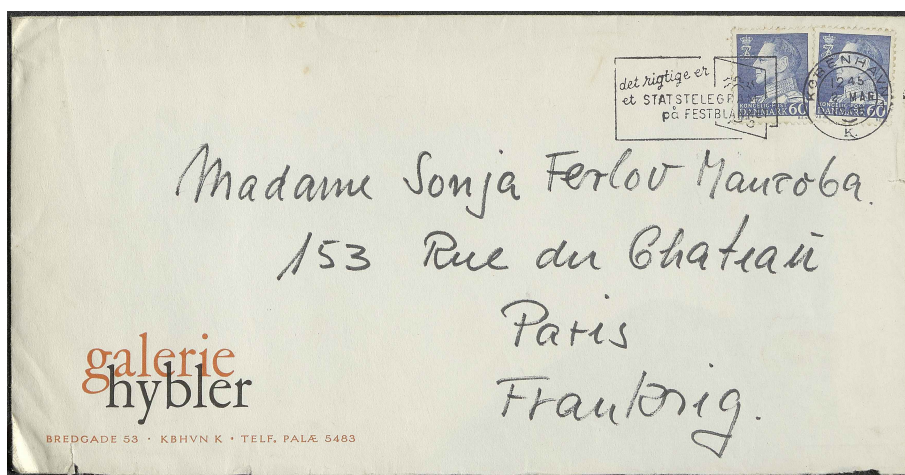 det rigtige er
et STATSTELEGRAM
på FESTBLANKET
KØBENHAVN
12.45
MAR
K.
KONGELIG POST
DANMARK 60
KONGELIG POST
DANMARK 60
Madame Sonja Ferlov Mancoba.
153 Rue du Chateau
Paris
Frankrig.
galerie
hybler
BREDGADE 53 · KBHVN K · TELF. PALÆ 5483